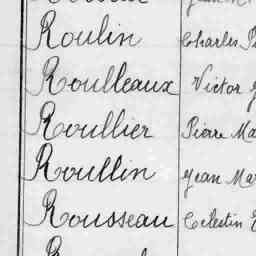 Roulin Charles
Roulleaux Victor
Roullier Pierre
Roullin Jean
Rousseau Celestin